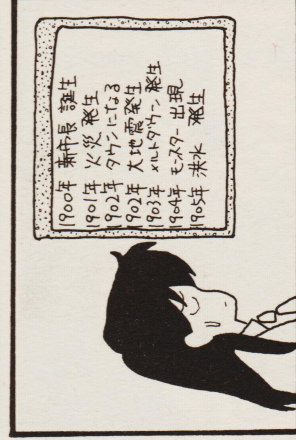 1900年 新市長 誕生
1901年 火災 発生
1902年 タウンになる
1902年 大地震発生
1903年 メルトダウン 発生
1904年 モンスター 出現
1905年 洪水 発生